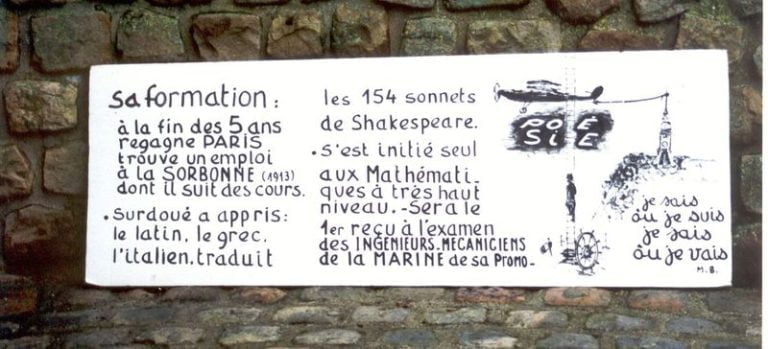 sa formation :
à la fin des 5 ans
regagne PARIS
trouve un emploi
à la SORBONNE (1913)
dont il suit des cours.
• Surdoué a appris :
le latin, le grec,
l'italien. traduit
les 154 sonnets
de Shakespeare.
• S'est initié seul
aux Mathémati-
ques à très haut
niveau. - Sera le
1er reçu à l'examen
des INGENIEURS. MECANICIENS
de la MARINE de sa Promo -
POÉ
SIE
je sais
où je suis
je sais
où je vais
M. B.